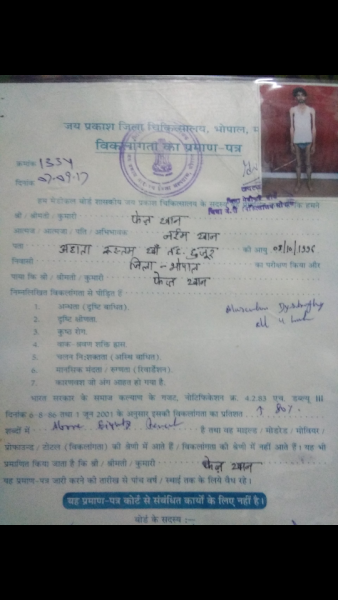 जय प्रकाश जिला चिकित्सालय, भोपाल, म
विकलांगता का प्रमाण-पत्र
क्रमांक 1334
दिनांक 07-09-17
हम मेडीकल बोर्ड शासकीय जय प्रकाश चिकित्सालय के सदस्य हमने
श्री / श्रीमती / कुमारी फेज खान
आत्मज / आत्मजा / पति / अभिभावक नईम खान
पता अहाता रुस्तम खाँ की आयु 08/10/1996
निवासी जिला-भोपाल का परीक्षण किया और
पाया कि श्री / श्रीमती / कुमारी फेज खान
निम्नलिखित विकलांगता से पीड़ित है
1. अन्धता (दृष्टि बाधित).
2. दृष्टि क्षीणता. Muscular Dystrophy
3. कुष्ठ रोग. all 4 limb
4. वाक-श्रवण शक्ति ह्रास.
5. चलन निःशक्तता (अस्थि बाधित).
6. मानसिक मंदता / रुग्णता (रिटार्डेशन).
7. कारणवश जो अंग आहत हो गया है.
भारत सरकार के समाज कल्याण के गजट, नोटिफिकेशन क्र. 4.2.83 एच. डब्ल्यू III
दिनांक 6-8-86 तथा 1 जून 2001 के अनुसार इसकी विकलांगता का प्रतिशत 80%
शब्दों में Above Eighty Percent है तथा वह माइल्ड / मोडरेड / सीवियर /
प्रोफाउन्ड / टोटल (विकलांगता) की श्रेणी में आते हैं / विकलांगता की श्रेणी में नहीं आते हैं। यह भी
प्रमाणित किया जाता है कि श्री / श्रीमती / कुमारी फेज खान
यह प्रमाण-पत्र जारी करने की तारीख से पांच वर्ष / स्थाई तक के लिये वैध रहे।
यह प्रमाण-पत्र कोर्ट से संबंधित कार्यों के लिए नहीं है।
बोर्ड के सदस्य :—